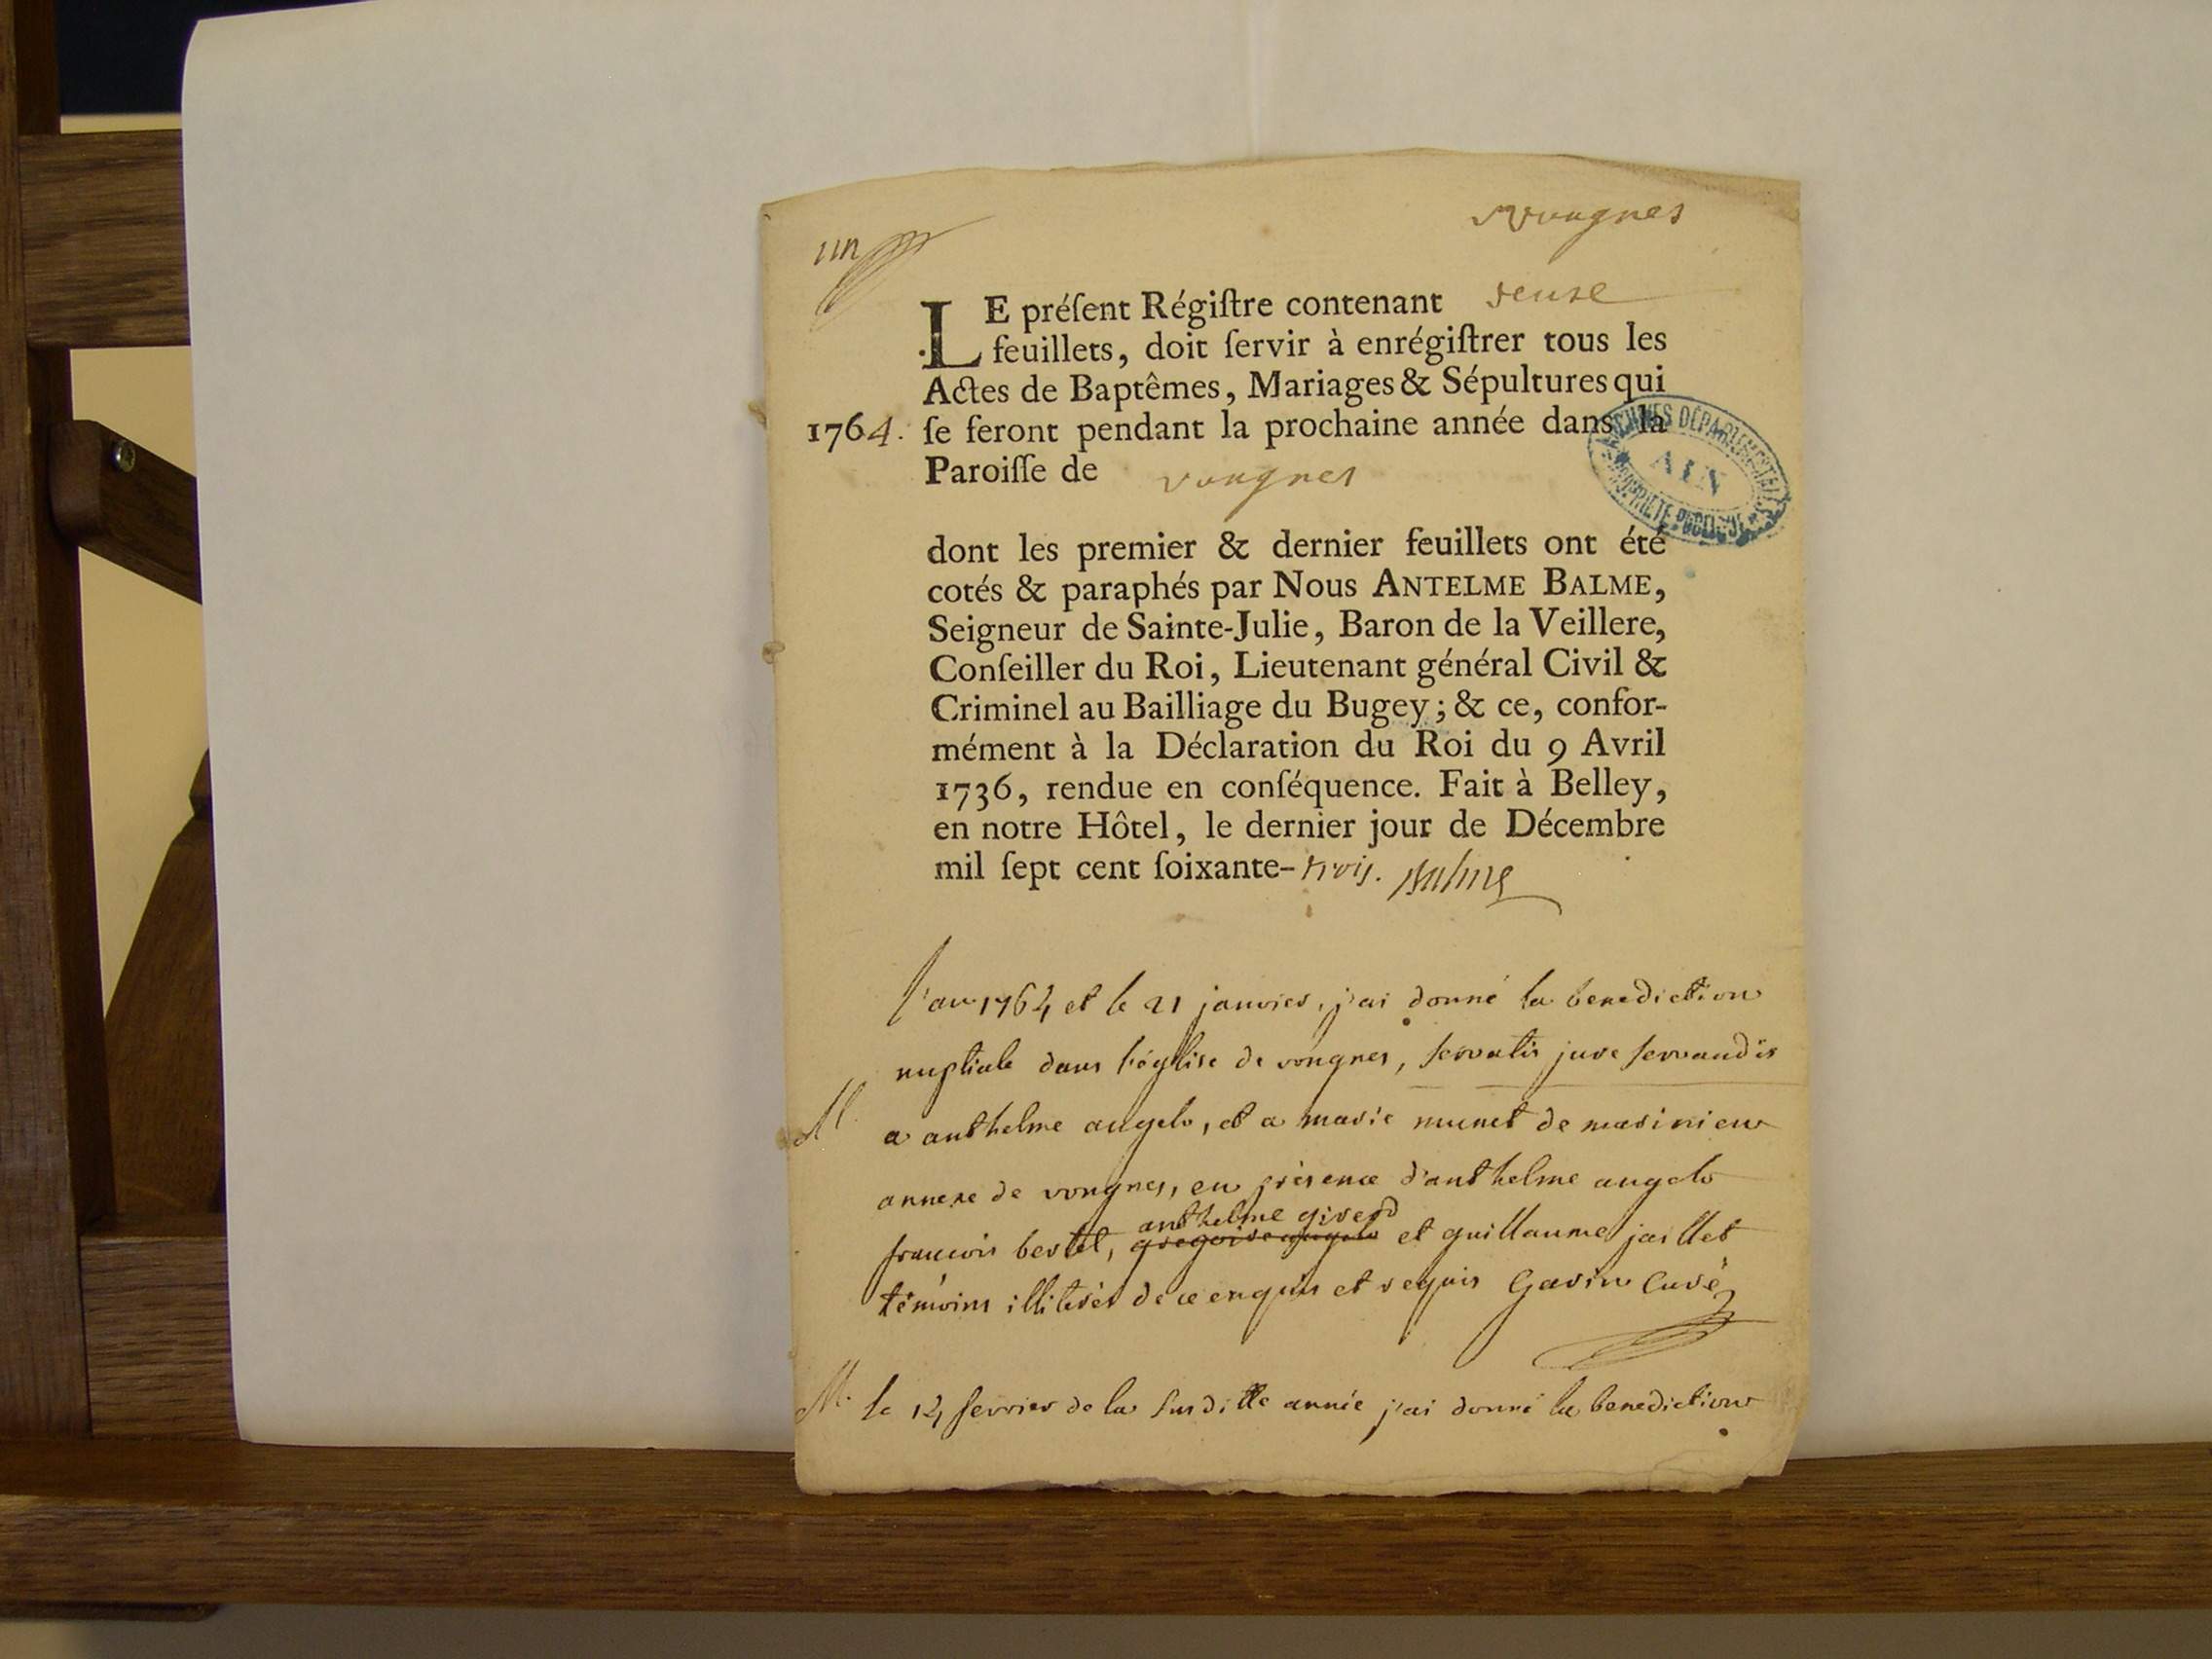 un
Vongnes
LE préſent Régiſtre contenant seuse
feuillets, doit ſervir à enrégiſtrer tous les
Actes de Baptêmes, Mariages & Sépultures qui
1764. ſe feront pendant la prochaine année dans la
Paroiſſe de vongnes
ARCHIVES DÉPARTEMENTALES
AIN
PROPRIÉTÉ PUBLIQUE
dont les premier & dernier feuillets ont été
cotés & paraphés par Nous ANTELME BALME,
Seigneur de Sainte-Julie, Baron de la Veillere,
Conſeiller du Roi, Lieutenant général Civil &
Criminel au Bailliage du Bugey; & ce, confor-
mément à la Déclaration du Roi du 9 Avril
1736, rendue en conſéquence. Fait à Belley,
en notre Hôtel, le dernier jour de Décembre
mil ſept cent ſoixante-trois. Balme
l'an 1764 et le 21 janvier, j'ai donné la benediction
nuptiale dans l'église de vongnes, servatis jure servandis
M. a anthelme angelo, et a marie munet de marinieu
annexe de vongnes, en présence d'anthelme angelo
anthelme girerd
francois bertet, gregoire angelo et guillaume jaillet
témoins illiterés de ce enquis et requis Gavin Curé
M. le 14 fevrier de la susditte année j'ai donné la benediction